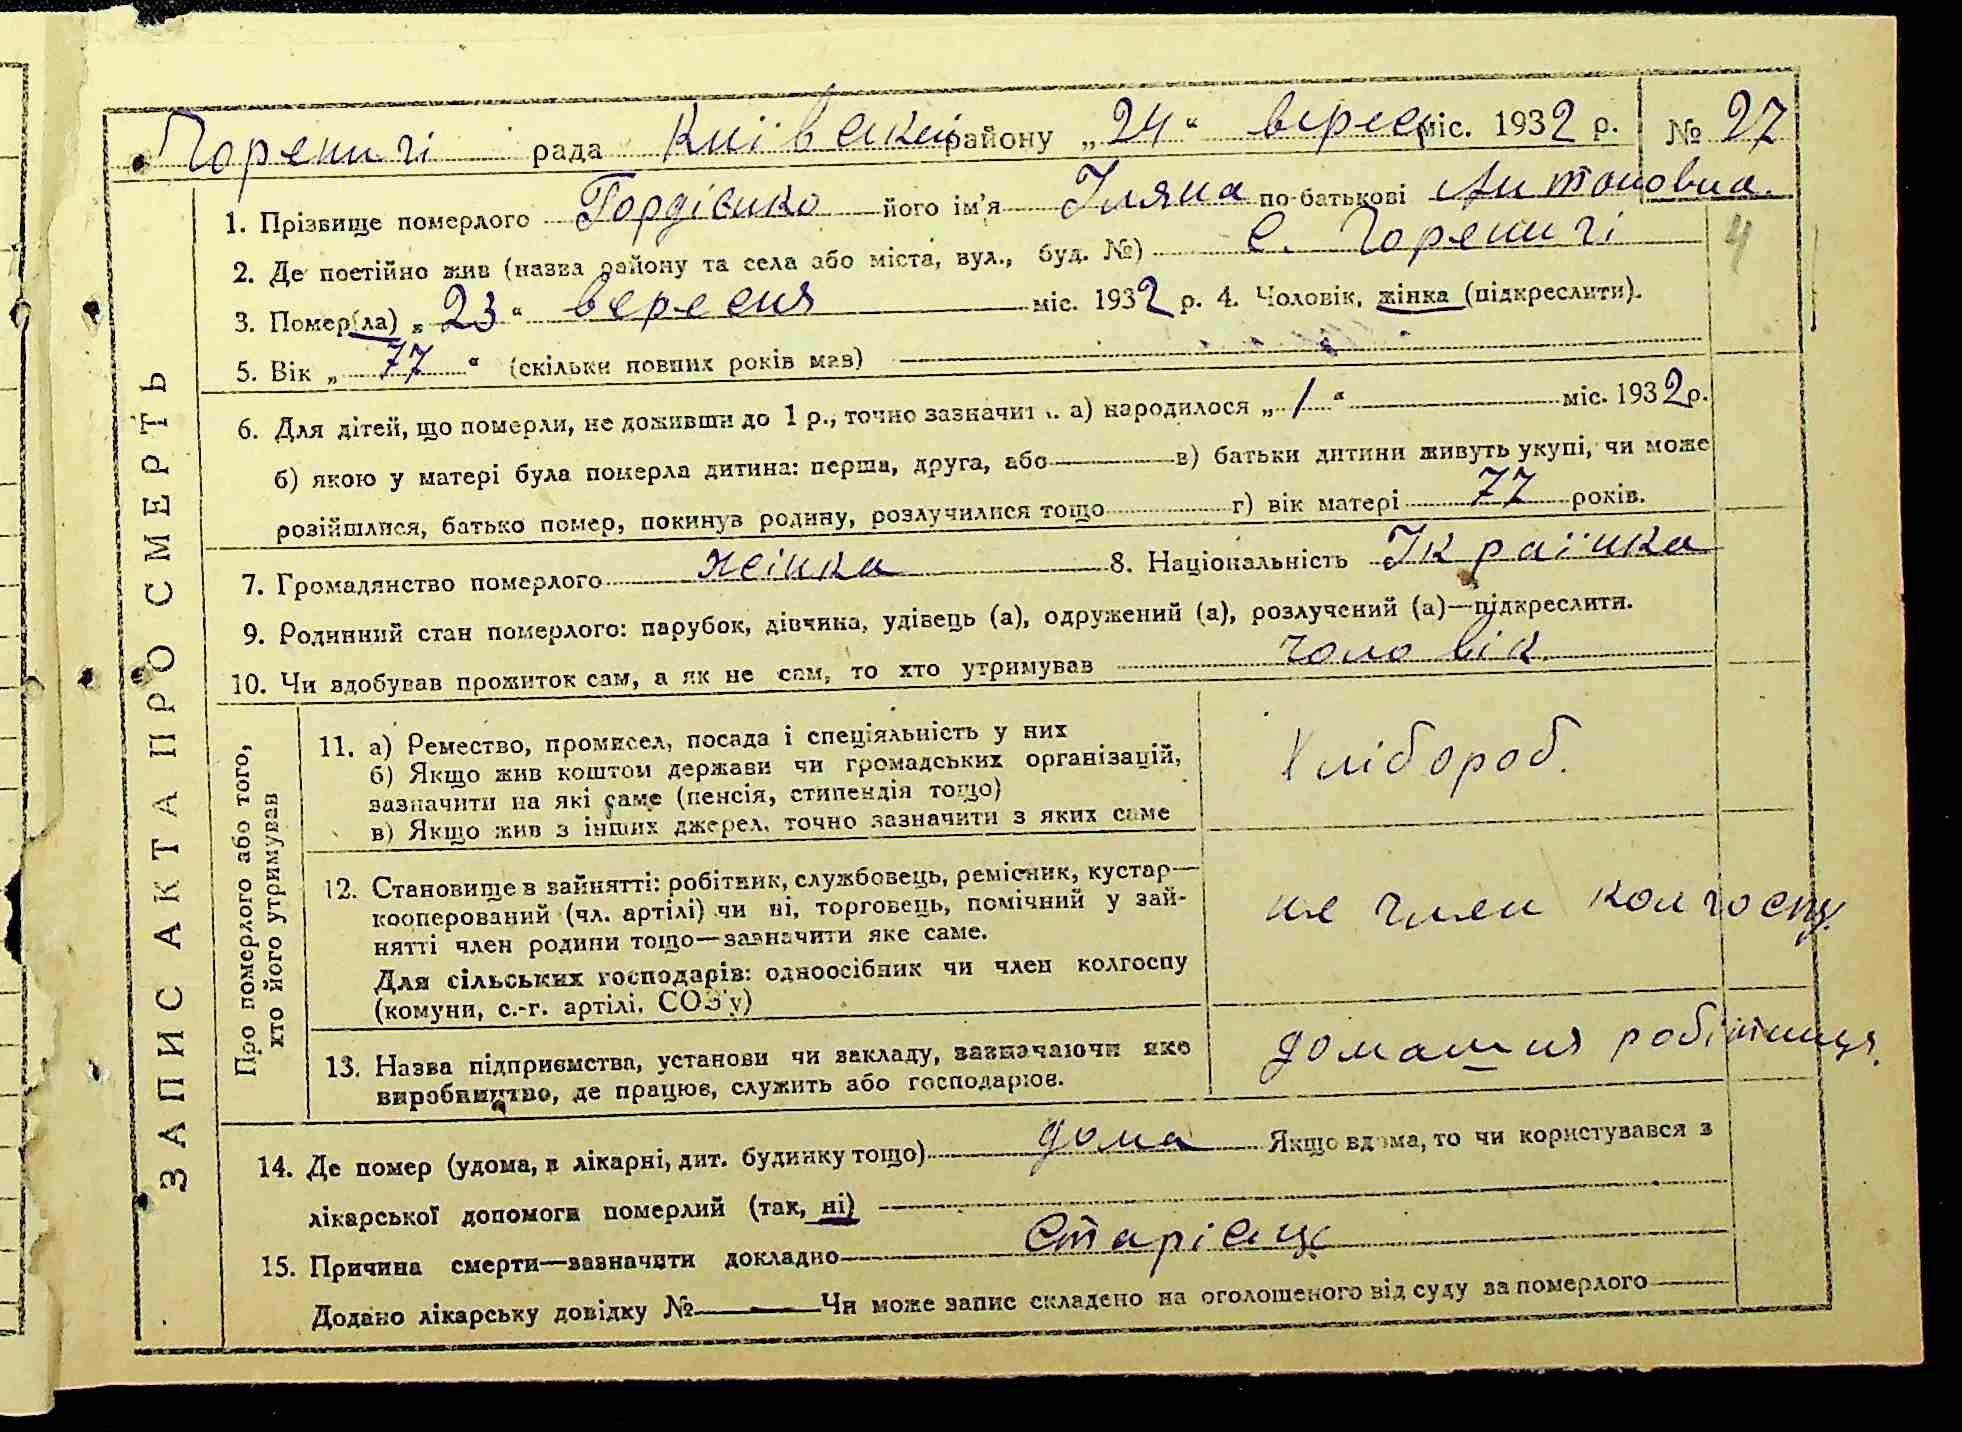 Гореничі рада Київської району „24“ вересн міс. 1932 р. № 27
1. Прізвище померлого Гордієнко його ім'я Уляна по-батькові Антоновна.
2. Де постійно жив (назва району та села або міста, вул., буд. №) с. Гореничі
4
3. Помер(ла) „23“ вересня міс. 1932 р. 4. Чоловік, жінка (підкреслити).
5. Вік „77“ (скільки повних років мав)
6. Для дітей, що померли, не доживши до 1 р., точно зазначит а) народилося „/“ міс. 1932 р.
б) якою у матері була померла дитина: перша, друга, або — в) батьки дитини живуть укупі, чи може
розійшлися, батько помер, покинув родину, розлучилися тощо г) вік матері 77 років.
7. Громадянство померлого жінка 8. Національність Українка
9. Родинний стан померлого: парубок, дівчина, удівець (а), одружений (а), розлучений (а)—підкреслити.
10. Чи здобував прожиток сам, а як не сам, то хто утримував чоловік.
ЗАПИС АКТА ПРО СМЕРТЬ
Про померлого або того,
хто його утримував
11. а) Ремество, промисел, посада і спеціяльність у них
б) Якщо жив коштом держави чи громадських організацій,
зазначити на які саме (пенсія, стипендія тощо)
в) Якщо жив з інших джерел, точно зазначити з яких саме
Хлібороб.
12. Становище в зайнятті: робітник, службовець, ремісник, кустар—
кооперований (чл. артілі) чи ні, торговець, помічний у зай-
нятті член родини тощо—зазначити яке саме.
Для сільських господарів: одноосібник чи член колгоспу
(комуни, с.-г. артілі, СОЗ'у)
не член колгоспу.
13. Назва підприємства, установи чи закладу, зазначаючи яке
виробництво, де працює, служить або господарює.
домашня робітниця.
14. Де помер (удома, в лікарні, дит. будинку тощо) дома Якщо вдома, то чи користувався з
лікарської допомоги померлий (так, ні)
15. Причина смерти—зазначити докладно Старісць
Додано лікарську довідку № — Чи може запис складено на оголошеного від суду за померлого